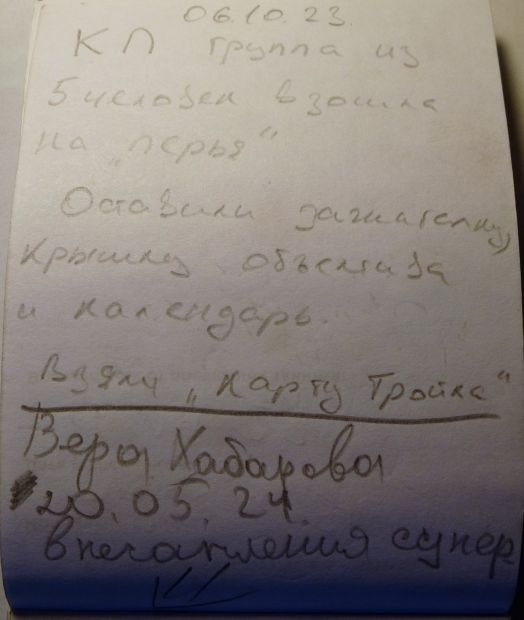 06.10.23.
КП группа из
5 человек взошла
на „Перья“
Оставили зажигалку,
крышку объектива
и календарь.
Взяли „Карту Тройка“
Вера Хабарова
20.05.24
впечатления супер